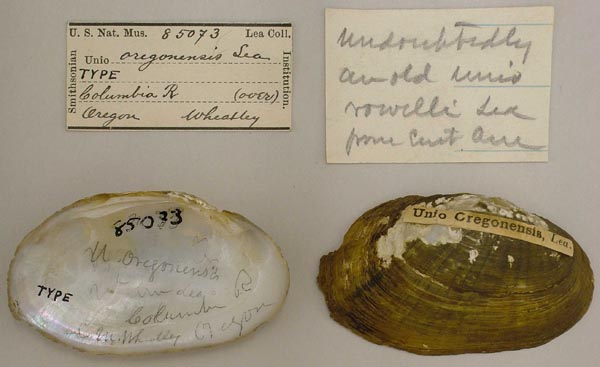 U. S. Nat. Mus. 85073 Lea Coll.
Smithsonian
Institution.
Unio oregonensis Lea
TYPE
Columbia R (8300)
Oregon Wheatley
Undoubtedly
an old unio
rowelli Lea
from Cent. Am
85073
U. Oregonensis
Lea
Columbia R
Oregon
TYPE
Unio Oregonensis, Lea.